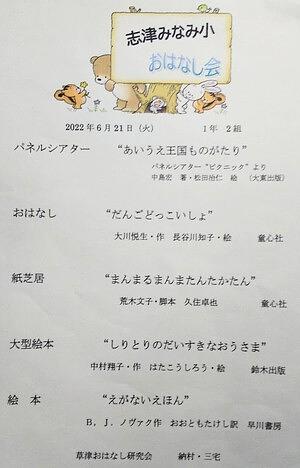 志津みなみ小
おはなし会
2022年6月21日（火） 1年 2組
パネルシアター “あいうえ王国ものがたり”
パネルシアター“ピクニック”より
中島宏 著・松田治仁 絵 （大東出版）
おはなし “だんごどっこいしょ”
大川悦生・作 長谷川知子・絵 童心社
紙芝居 “まんまるまんまたんたかたん”
荒木文子・脚本 久住卓也 童心社
大型絵本 “しりとりのだいすきなおうさま”
中村翔子・作 はたこうしろう・絵 鈴木出版
絵本 “えがないえほん”
B．J．ノヴァク作 おおともたけし訳 早川書房
草津おはなし研究会 納村・三宅